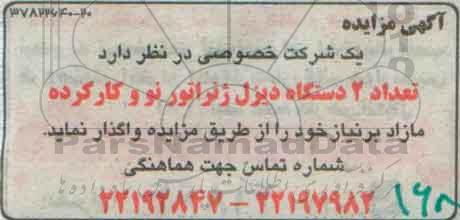 ۳۷۸۲۲۶۴۰-۲۰
آگهی مزایده
یک شرکت خصوصی در نظر دارد
تعداد ۲ دستگاه دیزل ژنراتور نو و کارکرده
مازاد برنیازخود را از طریق مزایده واگذار نماید.
شماره تماس جهت هماهنگی
۲۲۱۹۷۹۸۲ – ۲۲۱۹۲۸۴۷
ParsNamadData